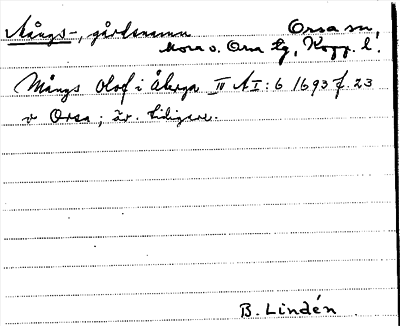 Mångs-, gårdsnamn Orsa sn,
Mora o. Orsa tg, Kopp. l.
Mångs Olof i Åberga IV A I: 6 1693 f. 23
v Orsa; äv. tidigare.
B. Lindén